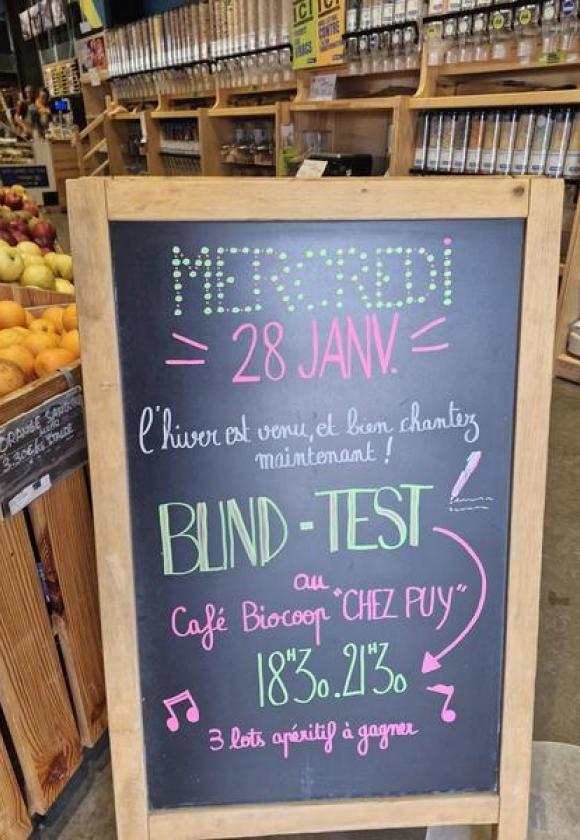 ICI
ICI
MERCREDI
28 JANV.
l'hiver est venu, et bien chantez
maintenant !
BLIND-TEST
au
Café Biocoop "CHEZ PUY"
18H30.21H30
3 lots apéritif à gagner
ORANGE SANGUINE
3.30€